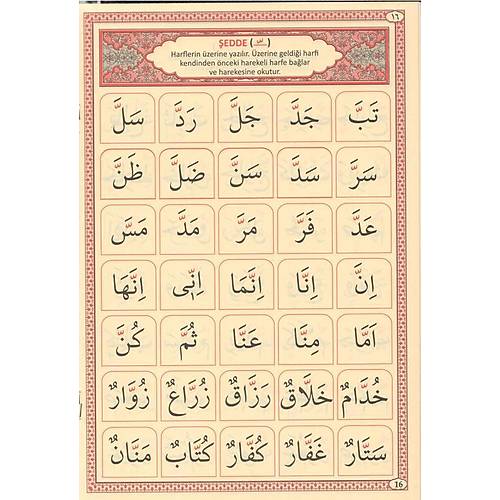 ١٦
ŞEDDE ( ـّـ )
Harflerin üzerine yazılır. Üzerine geldiği harfi
kendinden önceki harekeli harfe bağlar
ve harekesine okutur.
تَبَّ جَدَّ جَلَّ رَدَّ سَلَّ
سَرَّ سَدَّ سَنَّ ضَلَّ ظَنَّ
عَدَّ فَرَّ مَرَّ مَدَّ مَسَّ
اِنَّ اِنَّا اِنَّمَا اِنّٖى اِنَّهَا
اَمَّا مِنَّا عَنَّا ثُمَّ كُنَّ
خُدَّامٌ خَلَّاقٌ رَزَّاقٌ زُرَّاعٌ زُوَّارٌ
سَتَّارٌ غَفَّارٌ كُفَّارٌ كُتَّابٌ مَنَّانٌ
16